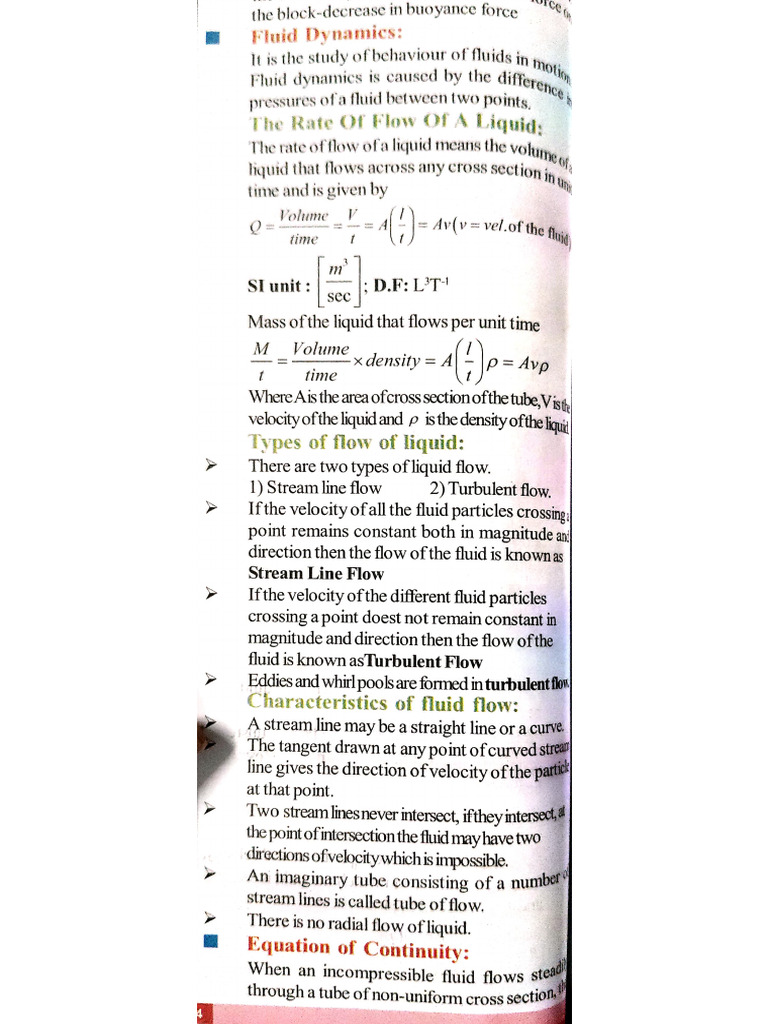 the block-decrease in buoyance force
Fluid Dynamics:
It is the study of behaviour of fluids in motion
Fluid dynamics is caused by the difference in
pressures of a fluid between two points.
The Rate Of Flow Of A Liquid:
The rate of flow of a liquid means the volume of a
liquid that flows across any cross section in unit
time and is given by
Q = Volume/time = V/t = A(l/t) = Av (v = vel.of the fluid)
SI unit : [m³/sec]; D.F: L³T⁻¹
Mass of the liquid that flows per unit time
M/t = Volume/time × density = A(l/t)ρ = Avρ
Where A is the area of cross section of the tube, V is the
velocity of the liquid and ρ is the density of the liquid
Types of flow of liquid:
➢ There are two types of liquid flow.
1) Stream line flow 2) Turbulent flow.
➢ If the velocity of all the fluid particles crossing a
point remains constant both in magnitude and
direction then the flow of the fluid is known as
Stream Line Flow
➢ If the velocity of the different fluid particles
crossing a point doest not remain constant in
magnitude and direction then the flow of the
fluid is known as Turbulent Flow
➢ Eddies and whirl pools are formed in turbulent flow.
Characteristics of fluid flow:
➢ A stream line may be a straight line or a curve.
➢ The tangent drawn at any point of curved stream
line gives the direction of velocity of the particle
at that point.
➢ Two stream lines never intersect, if they intersect, at
the point of intersection the fluid may have two
directions of velocity which is impossible.
➢ An imaginary tube consisting of a number of
stream lines is called tube of flow.
➢ There is no radial flow of liquid.
Equation of Continuity:
When an incompressible fluid flows steadily
through a tube of non-uniform cross section,
4